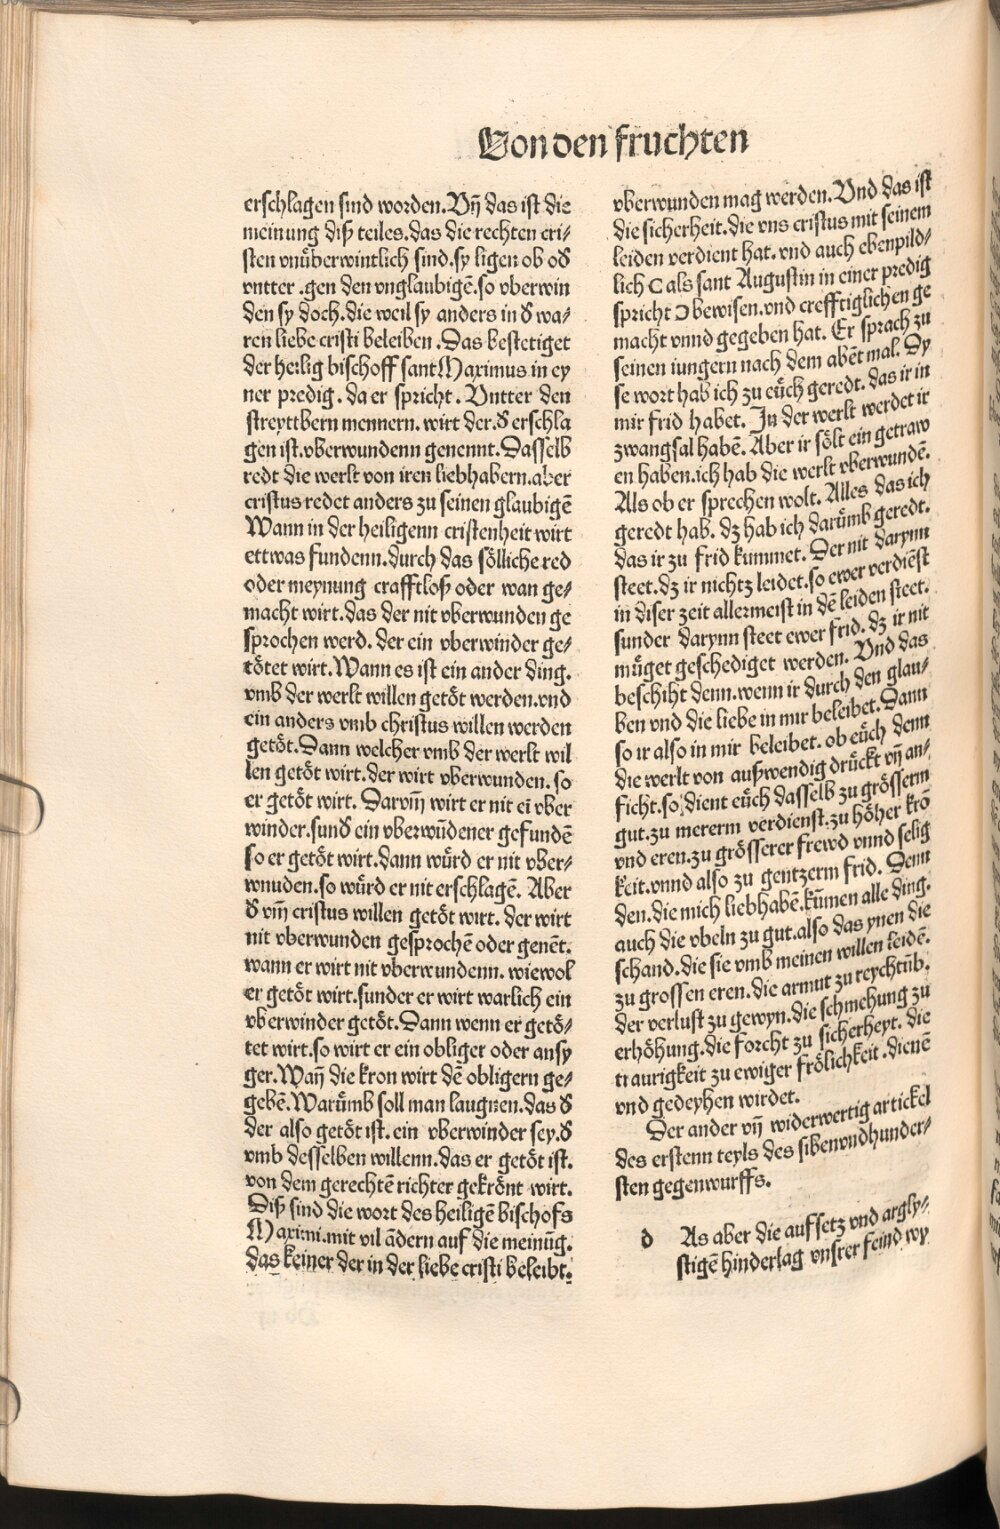 Von den fruchten
erschlagen sind worden. Vñ das ist die
meinung diß teiles. das die rechten cri⸗
sten vnüberwintlich sind. sy ligen ob oδ
vntter .gen den vnglaubigẽ. so vberwin
den sy doch. die weil sy anders in δ wa⸗
ren liebe cristi beleiben .Das bestetiget
der heilig bischoff sant Maximus in ey
ner predig . da er spricht . Vntter den
streyttbern mennern. wirt der. δ erschla
gen ist. vberwundenn genennt. Dasselb
redt die werlt von iren liebhabern. aber
cristus redet anders zu seinen glaubigẽ
Wann in der heiligenn cristenheit wirt
ettwas fundenn. durch das sölliche red
oder meynung crafftloß oder wan ge⸗
macht wirt. das der nit vberwunden ge
sprochen werd. der ein vberwinder ge⸗
tötet wirt. Wann es ist ein ander ding.
vmb der werlt willen getöt werden. vnd
ein anders vmb christus willen werden
getöt. Dann welcher vmb der werlt wil
len getöt wirt. der wirt vberwunden. so
er getöt wirt. Darvm̃ wirt er nit eĩ vber
winder. sunδ ein vberwũdener gefundẽ
so er getöt wirt. dann würd er nit vber⸗
wnuden. so würd er nit erschlagẽ. Aber
δ vm̃ cristus willen getöt wirt. der wirt
nit vberwunden gesprochẽ oder genẽt.
wann er wirt nit vberwundenn. wiewol
er getöt wirt. sunder er wirt warlich ein
vberwinder getöt. Dann wenn er getö⸗
tet wirt. so wirt er ein obliger oder ansy
ger. Wañ die kron wirt dẽ obligern ge⸗
gebẽ. Warümb soll man laugnen. das δ
der also getöt ist. ein vberwinder sey. δ
vmb desselben willenn. das er getöt ist.
von dem gerechtẽ richter gekrönt wirt.
Diß sind die wort des heiligẽ bischofs
Maximi. mit vil ãdern auf die meinũg.
das keiner der in der liebe cristi beleibt.
vberwunden mag werden. Vnd das ist
die sicherheit. die vns cristus mit seinem
leiden verdient hat. vnd auch ebenpild⸗
lich C als sant Augustin in einer predig
spricht Ɔ bewisen. vnd crefftiglichen ge
macht vnnd gegeben hat. Er sprach zu
seinen iungern nach dem abẽt mal. Dy
se wort hab ich zu eüch geredt. das ir in
mir frid habet. In der werlt werdet ir
zwangsal habẽ. Aber ir sölt ein getraw
en haben. ich hab die werlt vberwundẽ.
Als ob er sprechen wolt. Alles das ich
geredt hab. dz hab ich darümb geredt.
das ir zu frid kummet. Der nit darynn
steet. dz ir nichtz leidet. so ewer verdiẽst
in diser zeit allermeist in dẽ leiden steet.
sunder darynn steet ewer frid. dz ir nit
müget geschediget werden. Vnd das
beschiht denn. wenn ir durch den glau⸗
ben vnd die liebe in mir beleibet. Dann
so ir also in mir beleibet. ob eüch denn
die werlt von außwendig drückt vñ an⸗
ficht. so dient eüch dasselb zu grösserm
gut. zu mererm verdienst. zu höher krõ
vnd eren. zu grösserer frewd vnnd selig
keit. vnnd also zu gentzerm frid. Denn
den. die mich liebhabẽ. kũmen alle ding.
auch die vbeln zu gut. also das ynen die
schand. die sie vmb meinen willen leidẽ.
zu grossen eren. die armut zu reychtũb.
der verlust zu gewyn. die schmehung zu
erhöhung. die forcht zu sicherheyt. die
traurigkeit zu ewiger frölichkeit . dienẽ
vnd gedeyhen wirdet.
Der ander vñ widerwertig artickel
des erstenn teyls des sibenvndhunder⸗
sten gegenwurffs.
d As aber die aufsetz vnd argly⸗
stigẽ hinderlag vnsrer feind wy